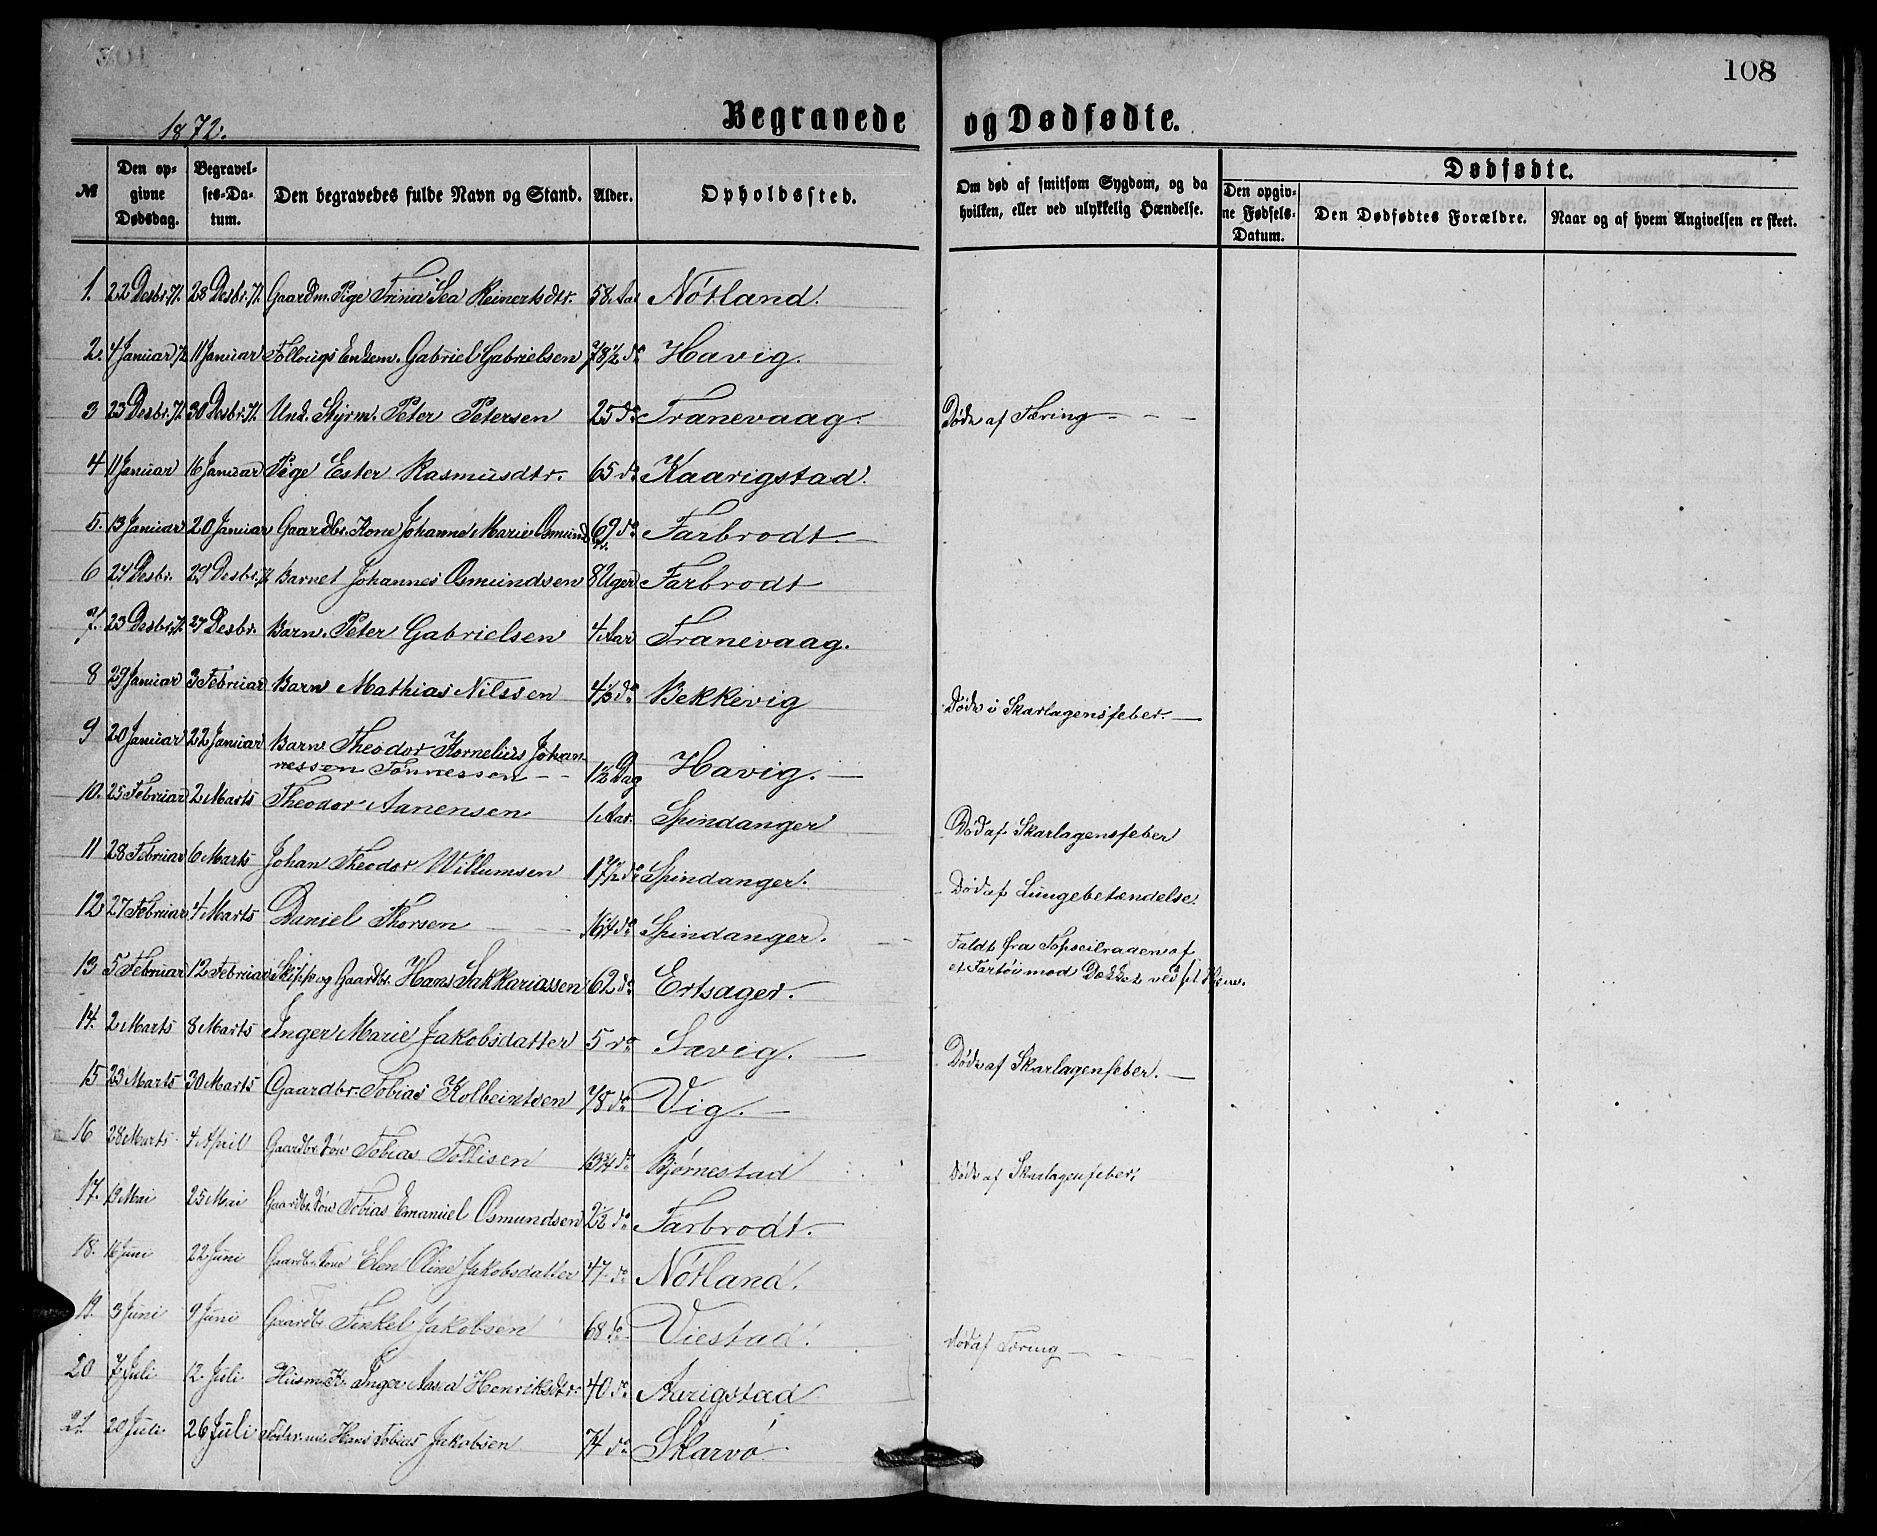 108
1872.
Begravede og Dødfødte.
№ | Den opgivne Dødsdag. | Begravelses-Datum. | Den begravedes fulde Navn og Stand. | Alder. | Opholdssted. | Om død af smitsom Sygdom, og da hvilken, eller ved ulykkelig Hændelse. | Dødfødte. Den opgivne Fødsels-Datum. | Den Dødfødtes Forældre. | Naar og af hvem Angivelsen er skeet.
1. 22 Desbr. 71. 28 Desbr. 71. Gaardm. Pige Trina Sea Reinertsdtr. 58 Aar Nótland.
2. 4 Januar 72 11 Januar Follougs Enkem. Gabriel Gabrielsen 78 1/2 do Havig.
3 23 Desbr. 71. 30 Desbr. 71. Und. Styrm. Peter Petersen 25 do Tranevaag. Døde af Tæring
4 11 Januar 16 Januar Pige Ester Rasmusdtr. 65 do Kaarigstad.
5. 13 Januar 20 Januar Gaardbr. Kone Johanne Marie Osmundsdtr. 69 do Farbrodt.
6 24 Desbr. 29 Desbr. 71 Barnet Johannes Osmundsen 8 Uger Farbrodt
7. 23 Desbr. 71. 27 Desbr. Barn. Peter Gabrielsen 4 Aar Tranevaag.
8 29 Januar 3 Februar Barn Mathias Nilssen 4 1/3 do Bekkevig Døde i Skarlagensfeber.
9 20 Januar 22 Januar Barn Theodor Kornelius Johan-
nessen Tønnessen 1 1/2 Dag Havig.
10. 25 Februar 2 Marts Theodor Aanensen 1 Aar. Spindanger Død af Skarlagensfeber
11 28 Februar 6 Marts Johan Theodor Willumsen 17 1/2 do Spindanger. Død af Lungebetændelse.
12 27 Februar 4 Marts Daniel Thorsen 16 1/4 do Spindanger. Faldt fra Topseilraaen af
et Fartöi mod Dækket ved
13 5 Februar 12 Februar Skipp. og Gaardbr. Hans Sakkariassen 62 do Ertsager.
14. 2 Marts 8 Marts Inger Marie Jakobsdatter 5 do Sævig. Døde af Skarlagenfeber.
15 23 Marts 30 Marts Gaardbr. Tobias Kolbeintsen 78 do Vig.
16 28 Marts 4 April Gaardbr. Søn Tobias Tollisen 13 3/4 do Bjørnestad Døde af Skarlagenfeber.
17. 19 Mai 25 Mai Gaardbr. Søn Tobias Emanuel Osmundsen 2 1/2 do Farbrodt.
18. 16 Juni 22 Juni Gaardbr. Kone Elen Oline Jakobsdatter 47 do Nótland.
19. 3 Juni 9 Juni Gaardbr. Jakobsen 68 do Viestad. Død af Tæring
20 7 Juli 12 Juli Husm. K. Inger Aasa Henriksdtr. 40 do Aarigstad
21. 20 Juli 26 Juli Hans Tobias Jakobsen 74 do Skarvö